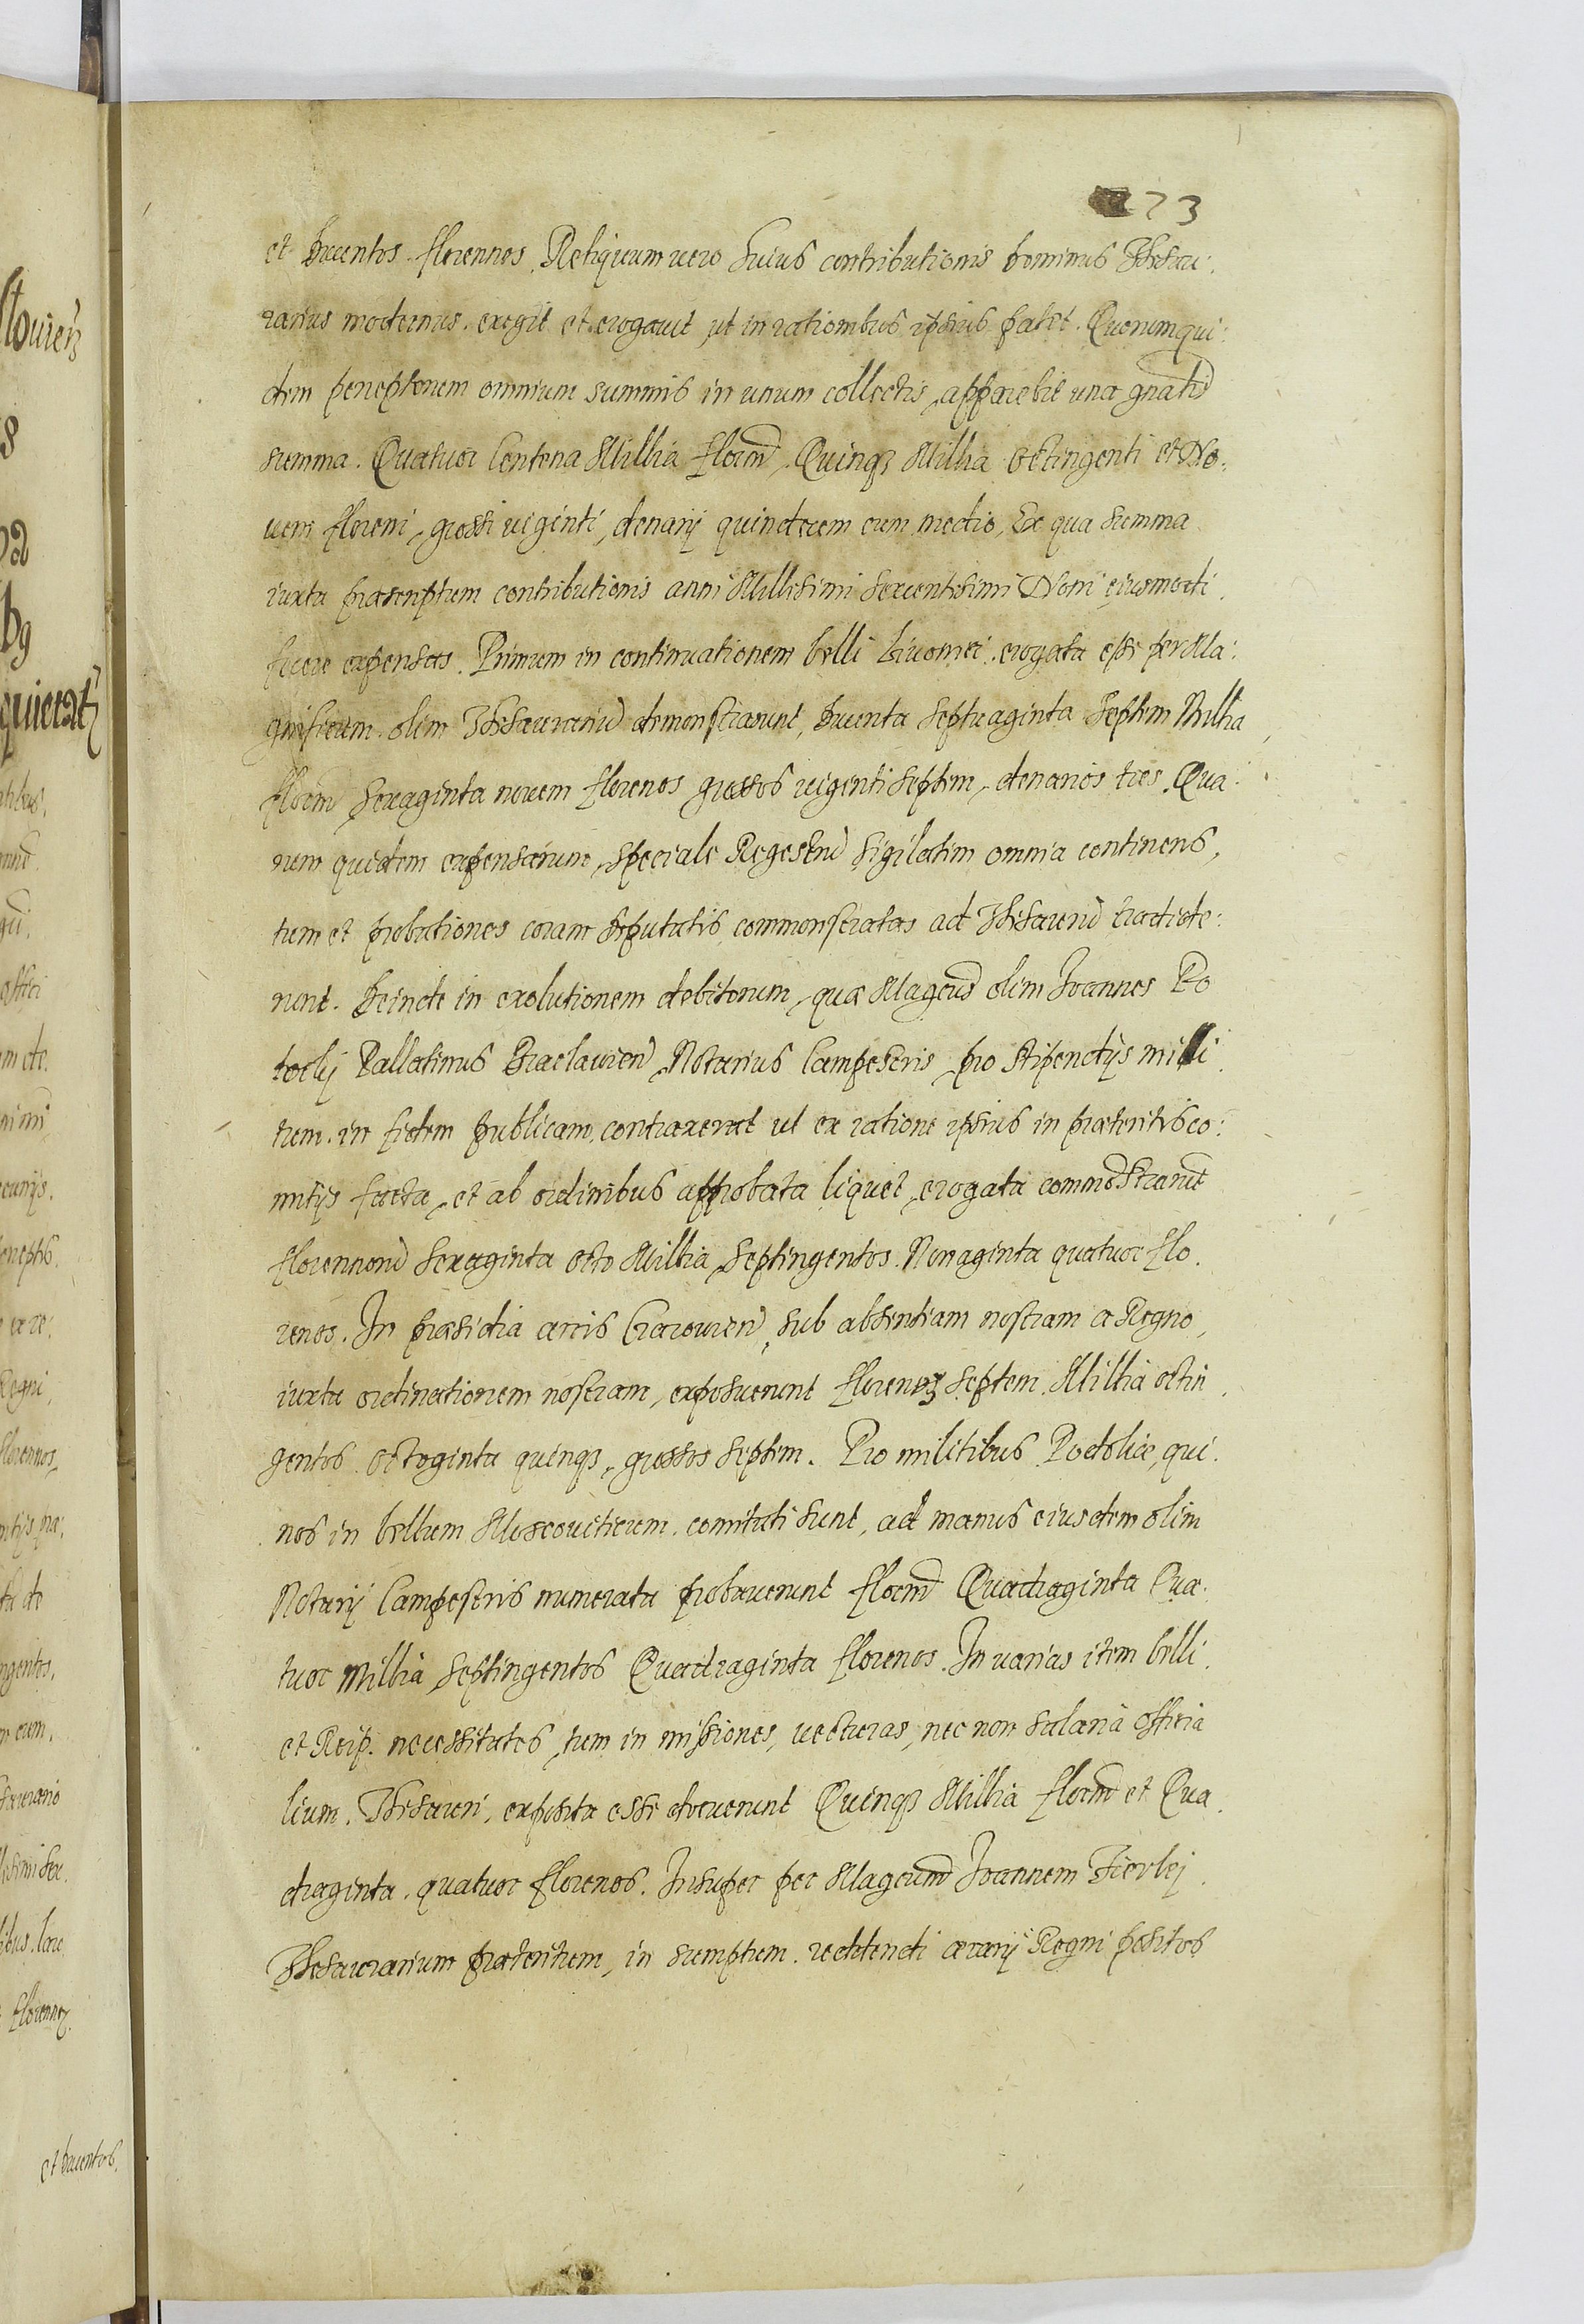 73
et Ducentos. florennos. Reliquum vero huius contributionis Dominus Thesau:
rarius modernus. exegit et erogavit, ut in rationibus ipsius patet. Quorum qui:
dem perceptorum omnium summis in unum collectis, apparebit una gnalis
summa. Quatuor Centena Millia floren Quinq3 Millia octingenti et No:
vem floreni, grossi viginti, denarij quindecem cum medio, Ex qua summa
iuxta praescriptum contributionis anni Millesimi sexcentesimi Noni eiusmodi.
fuere expensas. Primum in continuationem belli Livonici. erogata esse per Ma:
gnificum. olim Thesaurariu demonstrarunt, Ducenta Septuaginta Septem Millia
floren Sexaginta novem florenos grossos viginti Septem, denarios tres. Qua:
rum quidem expensarum, speciale Regestru sigilatim omnia continens,
tum et probationes coram Deputatis commonstratas ad Thesauru tradide:
runt. Deinde in exolutionem debitorum, quae Magcus olim Ioannes Po
tocky Pallatinus Braclavien, Notarius Campestris, pro stipendijs mili
tum. in fidem publicam. contraxerat ut ex ratione ipsius in praeteritis co:
mitijs facta, et ab ordinibus approbata liquet, erogata commostrarut
florennoru Sexaginta octo Millia, Septingentos. Nonaginta quatuor flo.
renos. In praesidia arcis Cracovien, sub absentiam nostram a Regno,
iuxta ordinationem nostram, exposuerunt florenos Septem Millia octin
gentos octoginta quinq3, grossos septem. Pro militibus Podoliae, qui
nos in bellum Moscoviticum. comitati sunt, ad manus eiusdem olim
Notarij Campestris numerata probaverunt floren Quadraginta Qua.
tuor Millia Septingentos Quadraginta florenos. In varias item belli.
et Reip. necessitates, tum in missiones, vecturas, nec non salaria officia
lium. Thesauri, exposita esse docuerunt Quinq3 Millia floren et Qua
draginta. quatuor florenos. Insuper per Magcum Ioannem Fierlej
Thesaurarium praeteritum, in sumptum. reddendi aerarij Regni positos